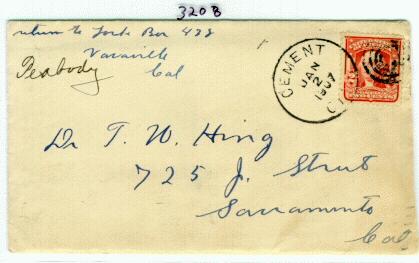 320 B
return to Box 488
Vacaville
Cal
Peabody
CEMENT
JAN
2
1907
Dr T. W. Hing
725 J. Street
Sacramento
Cal.